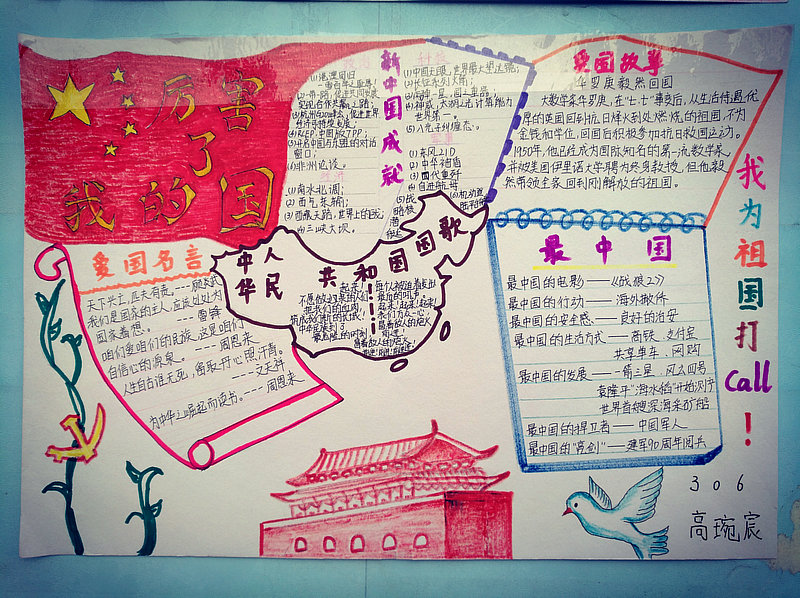 厉害了
我的国
新中国成就
(1)港澳回归
(5)亚非拉
(6)非洲论谈。
(1)南水北调；
(2)西气东输；
(4)三峡大坝。
科技
(2)长征系列火箭；
世界第一。
(1)东风21D
(2)中华神盾
(3)四代重歼
(4)自进航母
爱国故事
华罗庚毅然回国
大数学家华罗庚，在“七七”事变后，从生活待遇优
厚的英国回到抗日烽火到处燃烧的祖国，不为
金钱和学位，回国后积极参加抗日救国运动。
1950年，他已经成为国际知名的第一流数学家，
并被美国伊里诺大学聘为终身教授，但他毅
然带领全家回到刚解放的祖国。
爱国名言
天下兴亡，匹夫有责。---顾炎武
我们是国家的主人，应该处处为
国家着想。 ---雷锋
咱们爱咱们的民族，这是咱们
自信心的源泉。 ---周恩来
人生自古谁无死，留取丹心照汗青。
---文天祥
为中华之崛起而读书。---周恩来
中华人民共和国国歌
起来！
不愿做奴隶的人们
把我们的血肉，
筑成我们新的长城！
中华民族到了
最危险的时刻
每个人被迫着发出
最后的吼声。
起来！起来！起来！
我们万众一心
冒着敌人的炮火
前进！
冒着敌人的炮火
前进！前进！前进！进！
最中国
最中国的电影——《战狼2》
最中国的行动——海外撤侨
最中国的安全感——良好的治安
最中国的生活方式——高铁、支付宝
共享单车、网购
最中国的发展——箭三星、风云四号
袁隆平“海水稻”开始测产
世界首艘深海采矿船
最中国的捍卫者——中国军人
最中国的“高剑”——建军90周年阅兵
我为祖国打Call！
306
高琬宸